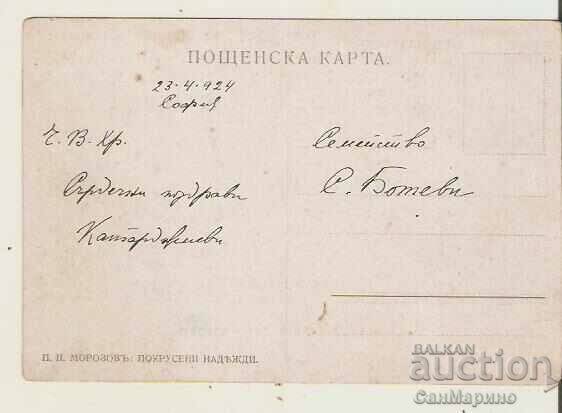 ПОЩЕНСКА КАРТА.
23·4·924
София
Ч. В. Хр.
Сърдечни поздрави
Катарджиеви
Семейство
С. Ботеви
П. Н. МОРОЗОВЪ: ПОКРУСЕНИ НАДѢЖДИ.
BALKAN
auction
СанМарино